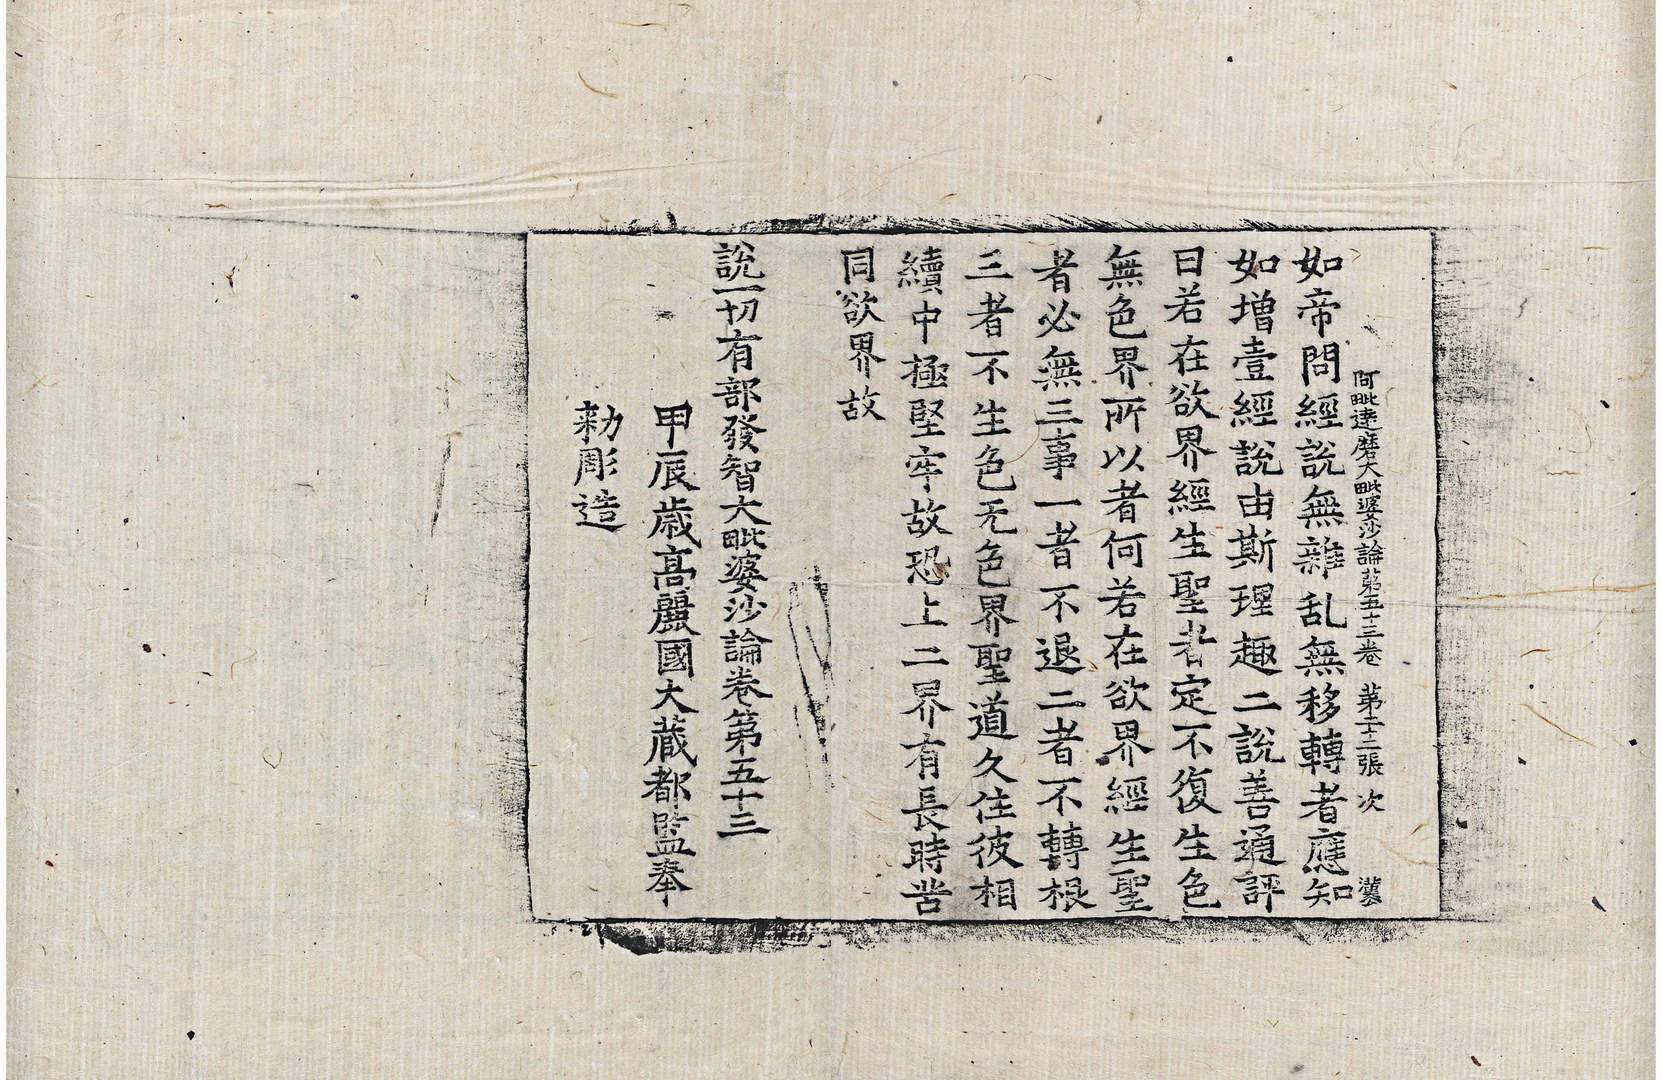 阿毗達磨大毗婆沙論第五十三卷 第二十二張 次
如帝問經說無雜乱無移轉者應知
如增壹經說由斯理趣二說善通評
曰若在欲界經生聖者定不復生色
無色界所以者何若在欲界經生聖
者必無三事一者不退二者不轉根
三者不生色无色界聖道久住彼相
續中極堅牢故恐上二界有長時苦
同欲界故
說一切有部發智大毗婆沙論卷第五十三
甲辰歲高麗國大藏都監奉
勑彫造